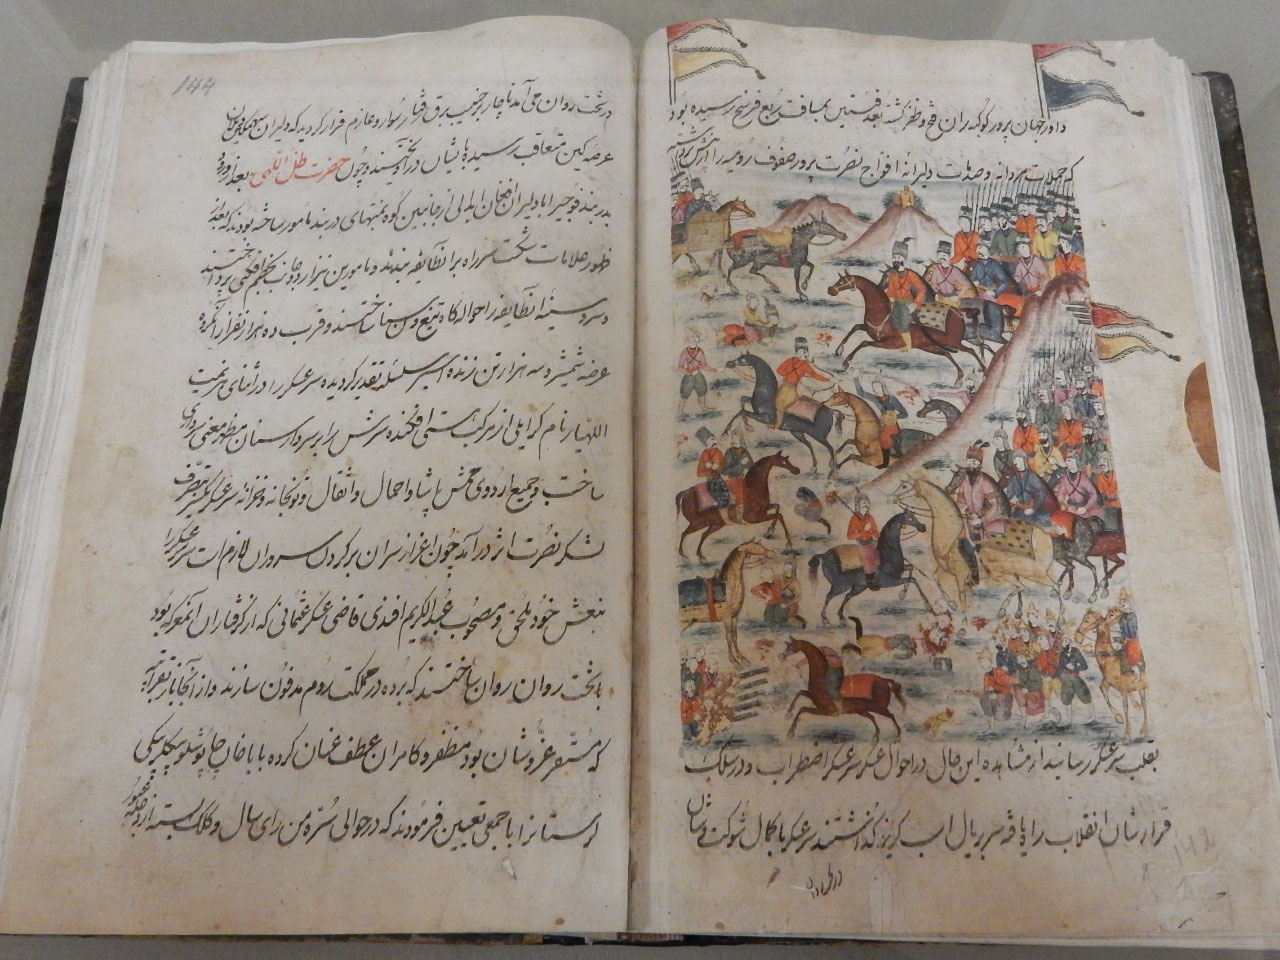 داور جهان پرور کوکبه ران فتح و ظفر گشته بعد فئتین بمسافت ربع فرسخ رسیده بود
که حملات مردانه و صدمات دلیرانه افواج نصرت پرور صفوف رومیه را
بقلب سرعسکر رسانیدند از مشاهده این حال در احوال عسکر سرعسکر اضطراب و در سلک
قرارشان انقلاب راه یافته سر بر یال اسب گریز گذاشتند سرعسکر با کمال شوکت و شان
در تخت روان می آمد ناچار بر جنیبت برق رفتار سوار و عازم فرار گردید که دلیران
عرصه کین متعاقب رسیده با ایشان در آویختند و چون حضرت ظل اللهی بعد از ورود
بدربند فوجی را با دلیران افغان ابدالی از جانبین کوه بمنتهای دربند مامور ساخته بودند که بعد از
ظهور علامات شکست سر راه بر آنطایفه ببندند و مامورین نیز از دو جانب
و سر و سینه آنطایفه را حواله گاه تیغ و سنان ساختند و قرب ده هزار نفر از آنگروه
عرضه شمشیر و سه هزار تن زنده اسیر سلسله تقدیر گردیده سرعسکر را در اثنای هزیمت
اللهیار نام گرایلی از مرکب هستی افکنده سرش را بر سر
ساخت و جمیع اردوی و خمش پاشا و احمال و اثقال و توپخانه و خزانه سرعسکر بتصرف
لشکر نصرت اثر درآمد چون اعزاز سران بر گردن سروران لازم است سر سرعسکر را
بنعش خود ملحق و مصحوب عبدالکریم افندی قاضی عسکر عثمانی که از گرفتاران آنمعرکه بود
با تخت روان روان ساختند که برده در مملکت روم مدفون سازند و از آنجا
که مستقر عز و شان بود مظفر و کامران عطف عنان کرده بابا خان چاپوشلو بیگلربیگی
لرستان را با جمعی تعیین فرمودند که در حوالی سره من رای سال و کلک بسته از دجله عبور